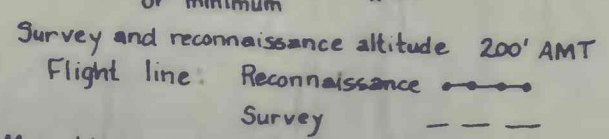 or minimum
Survey and reconnaissance altitude 200' AMT
Flight line: Reconnaissance
Survey